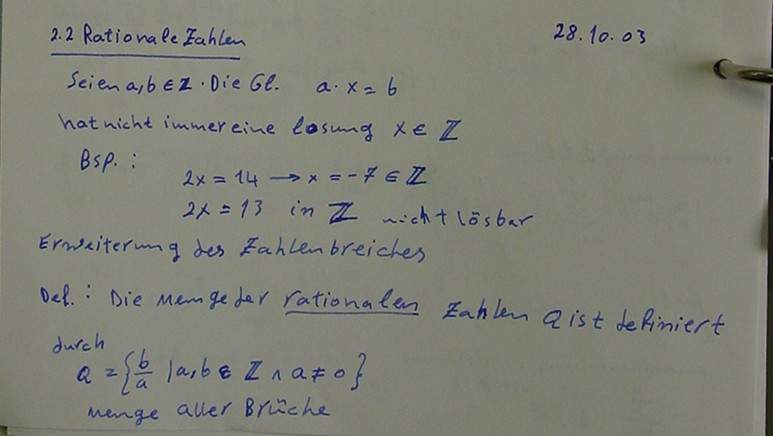 2.2 Rationale Zahlen 28.10.03
Seien a,b ∈ ℤ. Die Gl. a · x = b
hat nicht immer eine losung x ∈ ℤ
Bsp. :
2x = 14 → x = -7 ∈ ℤ
2x = 13 in ℤ nicht lösbar
Erweiterung des Zahlenbreiches
Def. : Die Menge der rationalen Zahlen Q ist definiert
durch
Q = {b/a | a,b ∈ ℤ ∧ a ≠ 0}
Menge aller Brüche